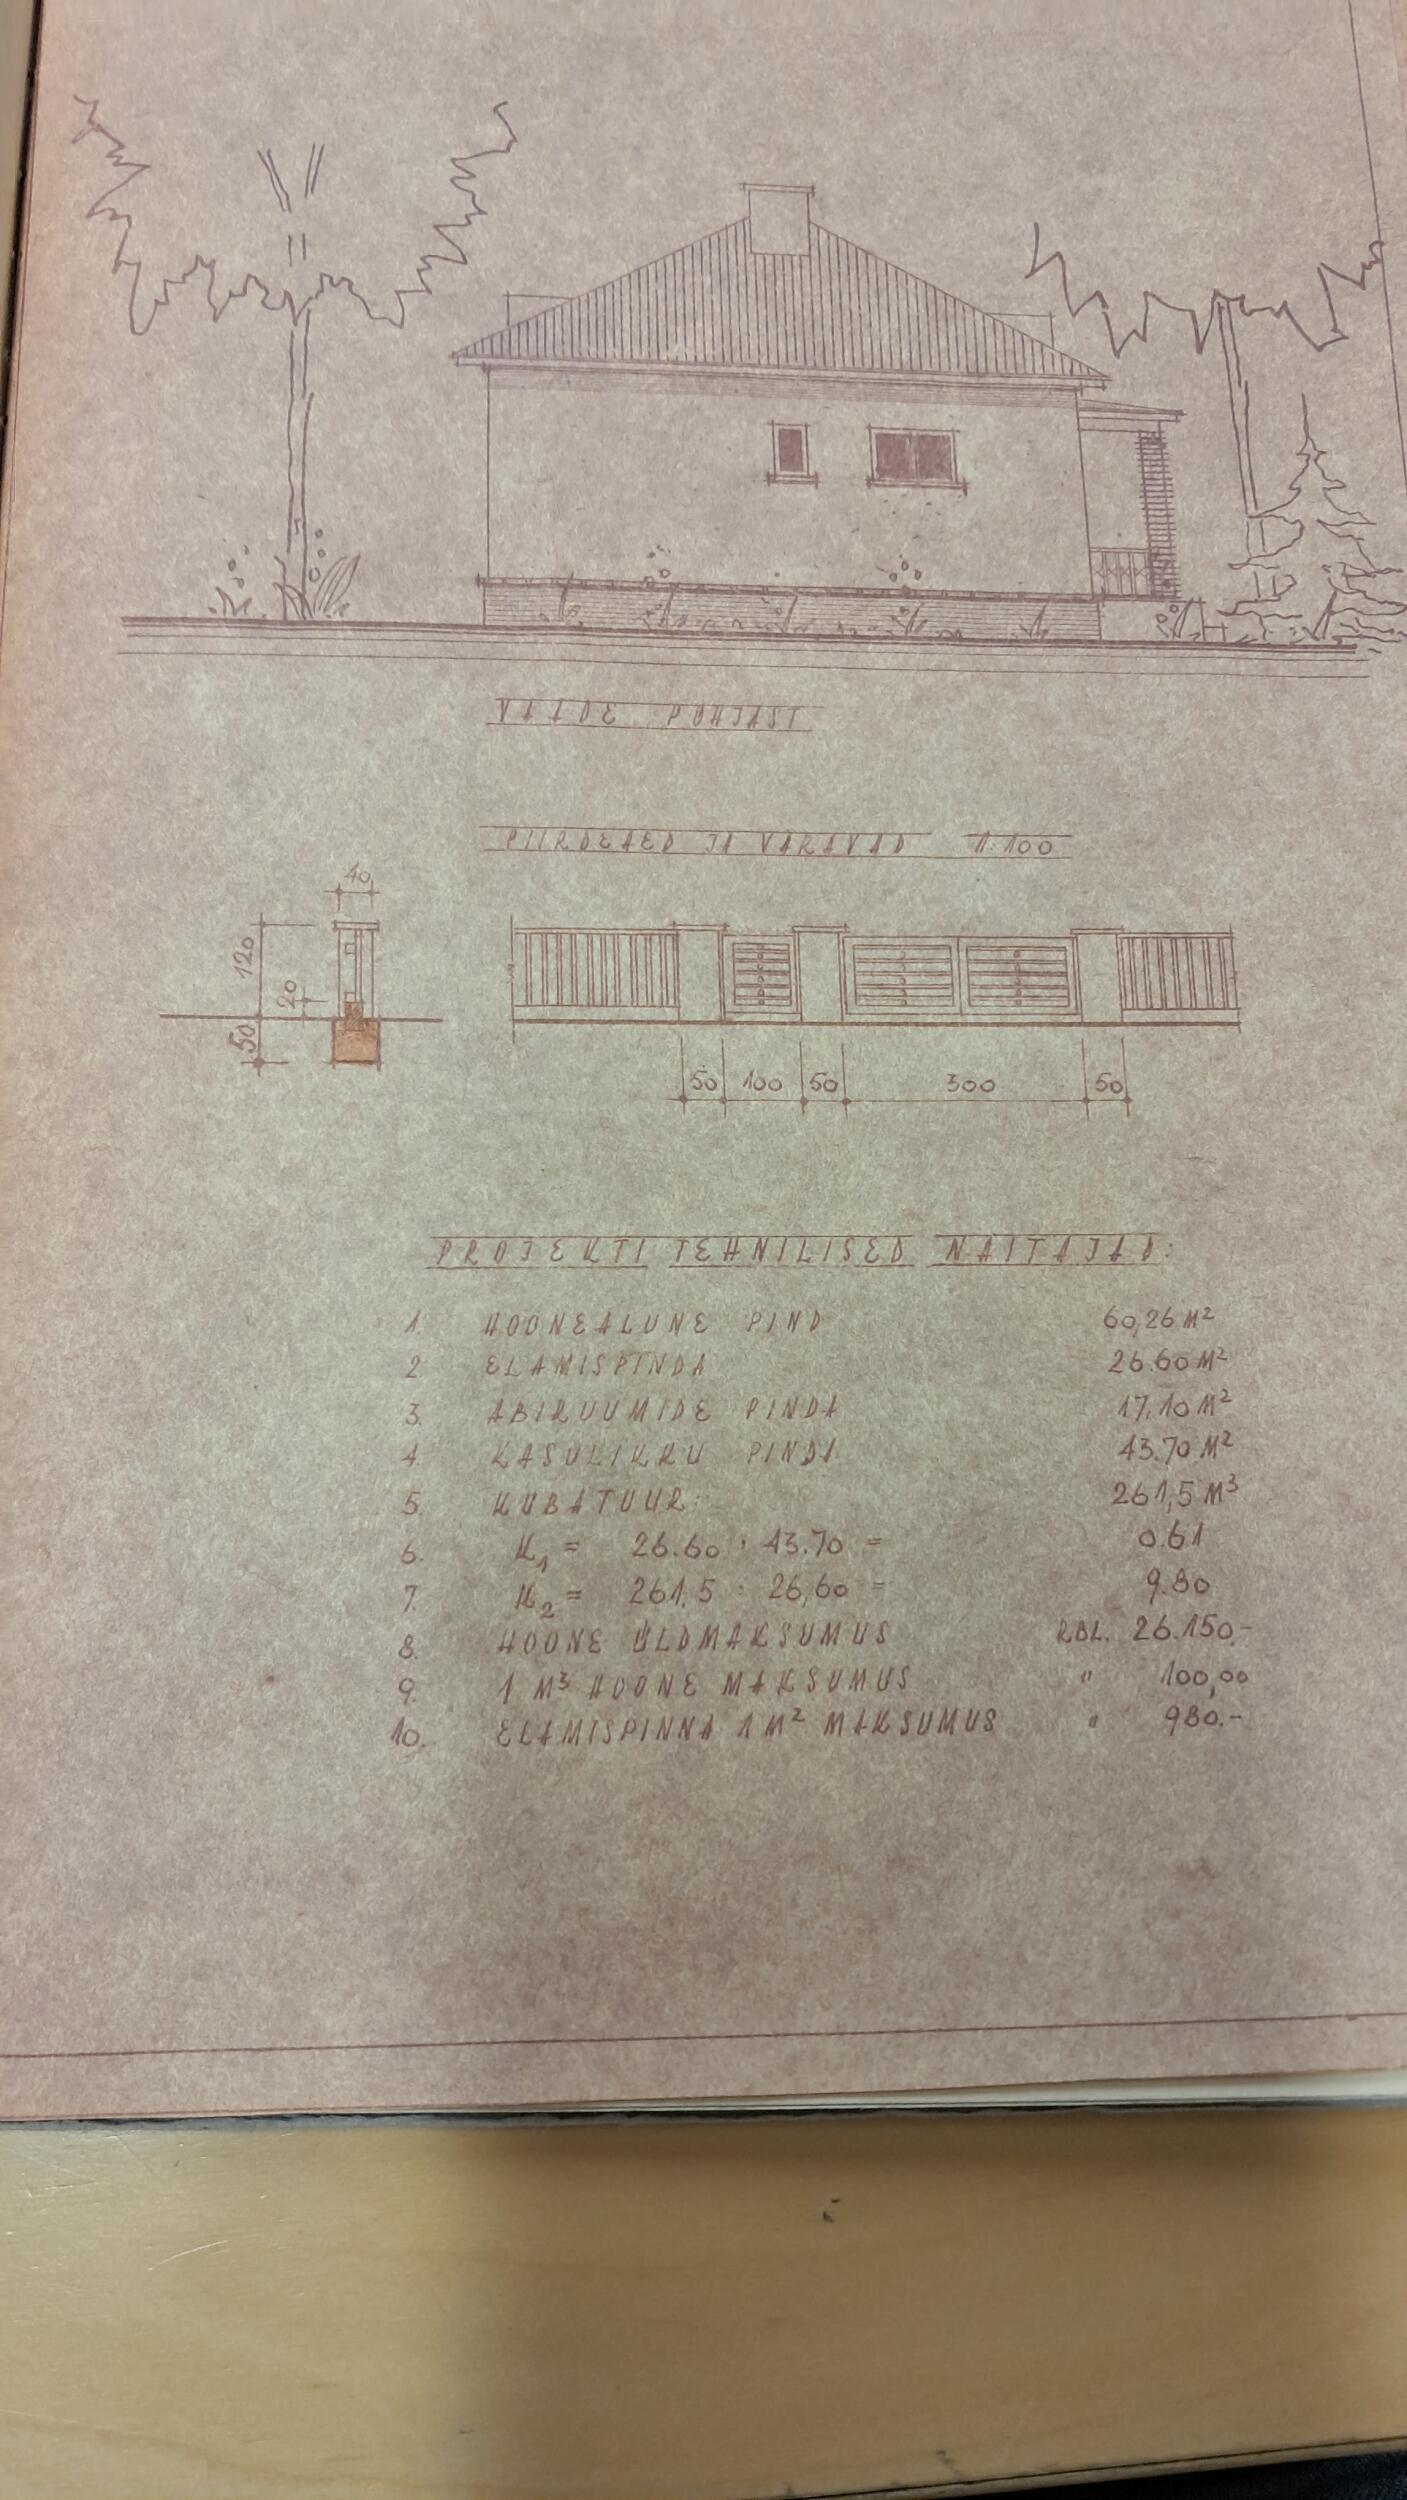 VAADE PÕHJAST
PIIRDEAED JA VÄRAVAD 1:100
40
120
20
50
50 100 50 300 50
PROJEKTI TEHNILISED NÄITAJAD:
1. HOONEALUNE PIND 60,26 M²
2 ELAMISPINDA 26.60 M²
3. ABIRUUMIDE PINDA 17,10 M²
4. KASULIKKU PINDA 43.70 M²
5. KUBATUUR: 261,5 M³
6. K₁ = 26.60 : 43.70 = 0.61
7. K₂ = 261,5 : 26,60 = 9.80
8. HOONE ÜLDMAKSUMUS RBL. 26.150.-
9. 1 M³ HOONE MAKSUMUS " 100,00
10. ELAMISPINNA 1 M² MAKSUMUS " 980.-